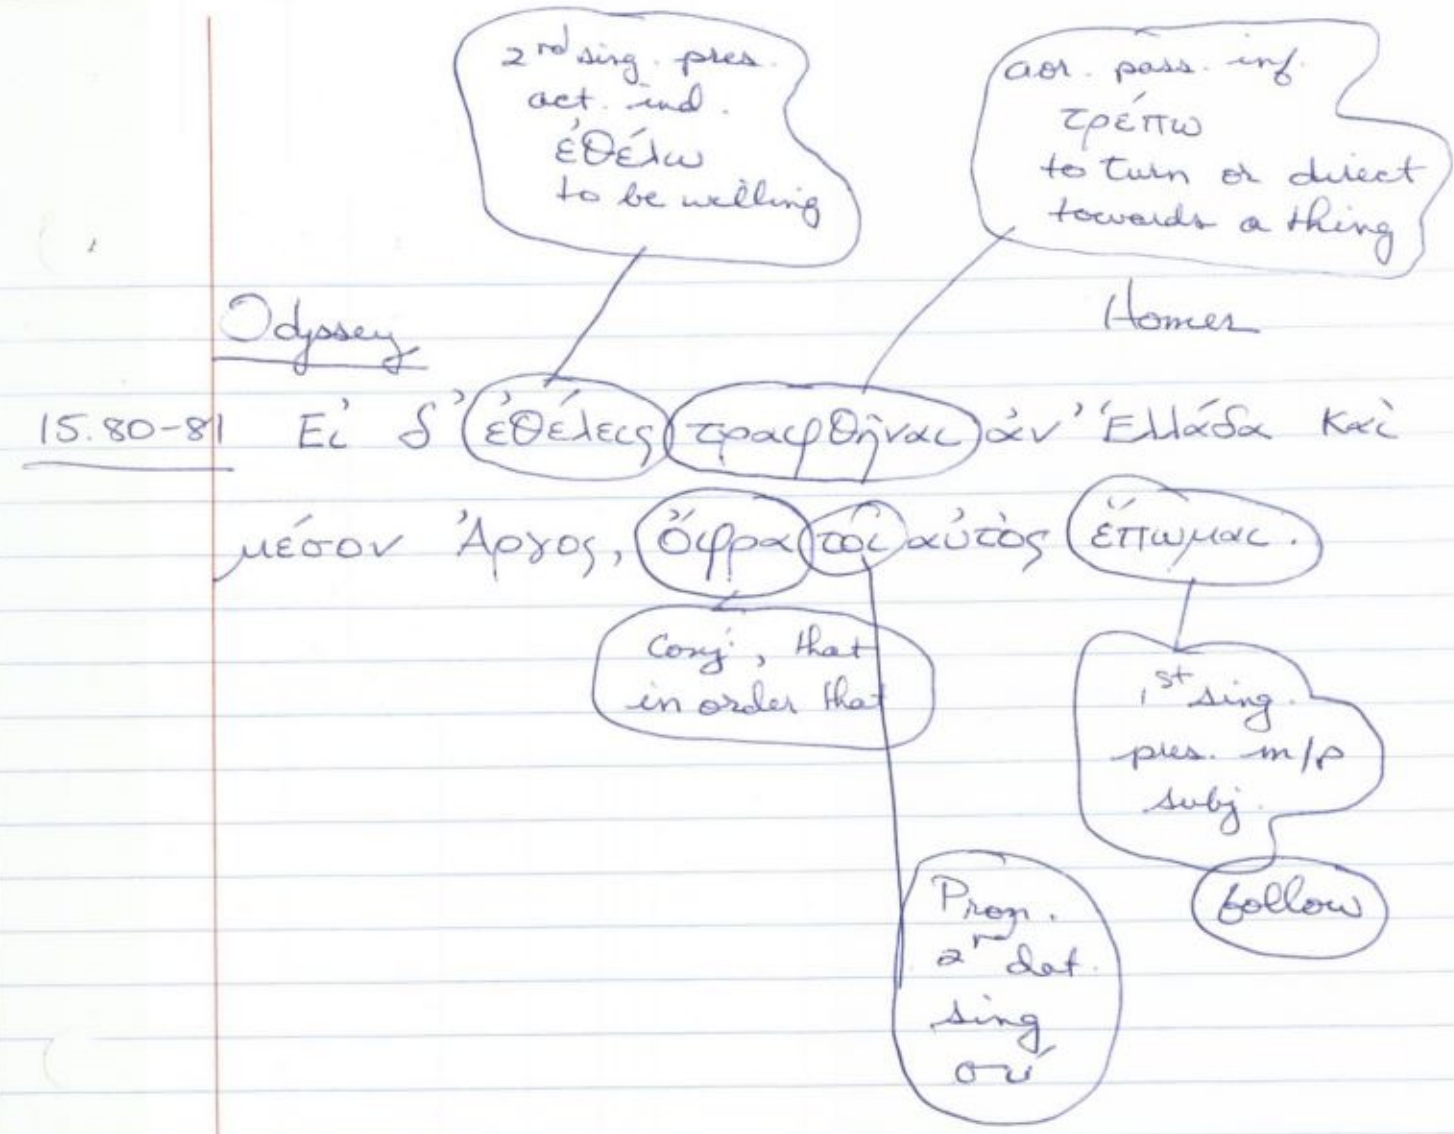 2nd sing. pres.
act. ind.
ἐθέλω
to be willing
aor. pass. inf.
τρέπω
to turn or direct
towards a thing
Odyssey
Homer
15.80-81 Εἰ δ' ἐθέλεις τραφθῆναι ἀν' Ἑλλάδα καὶ
μέσον Ἄργος, ὄφρα τοι αὐτὸς ἕπωμαι.
Conj., that
in order that
1st sing.
pres. m/p
subj.
follow
Pron.
2nd dat.
sing
σύ